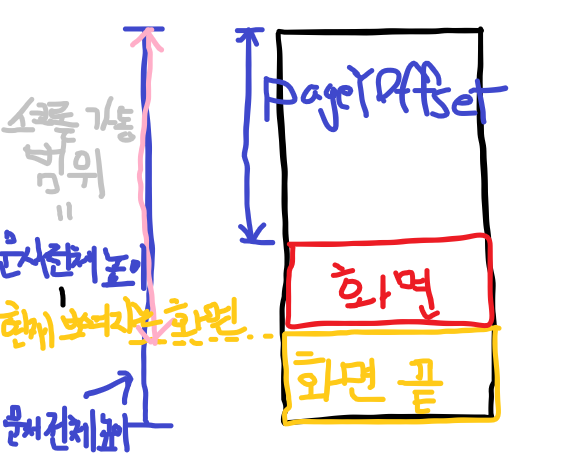 스크롤 가능
범위
=
문서전체 높이
-
현재 보여지는 화면
문서 전체 높이
pageYOffset
화면
화면 끝